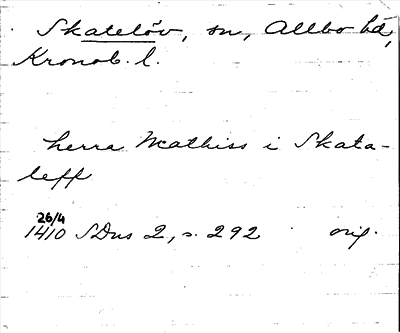 Skatelöv, sn, Allbo hd,
Kronob. l.
herra Mathiss i Skata-
leff
26/4
1410 SDns 2, s. 292 orig.